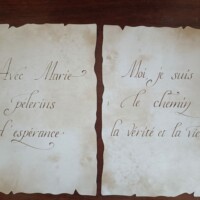 Avec Marie
pelerins
d'espérance
Moi je suis
le chemin
la vérité et la vie